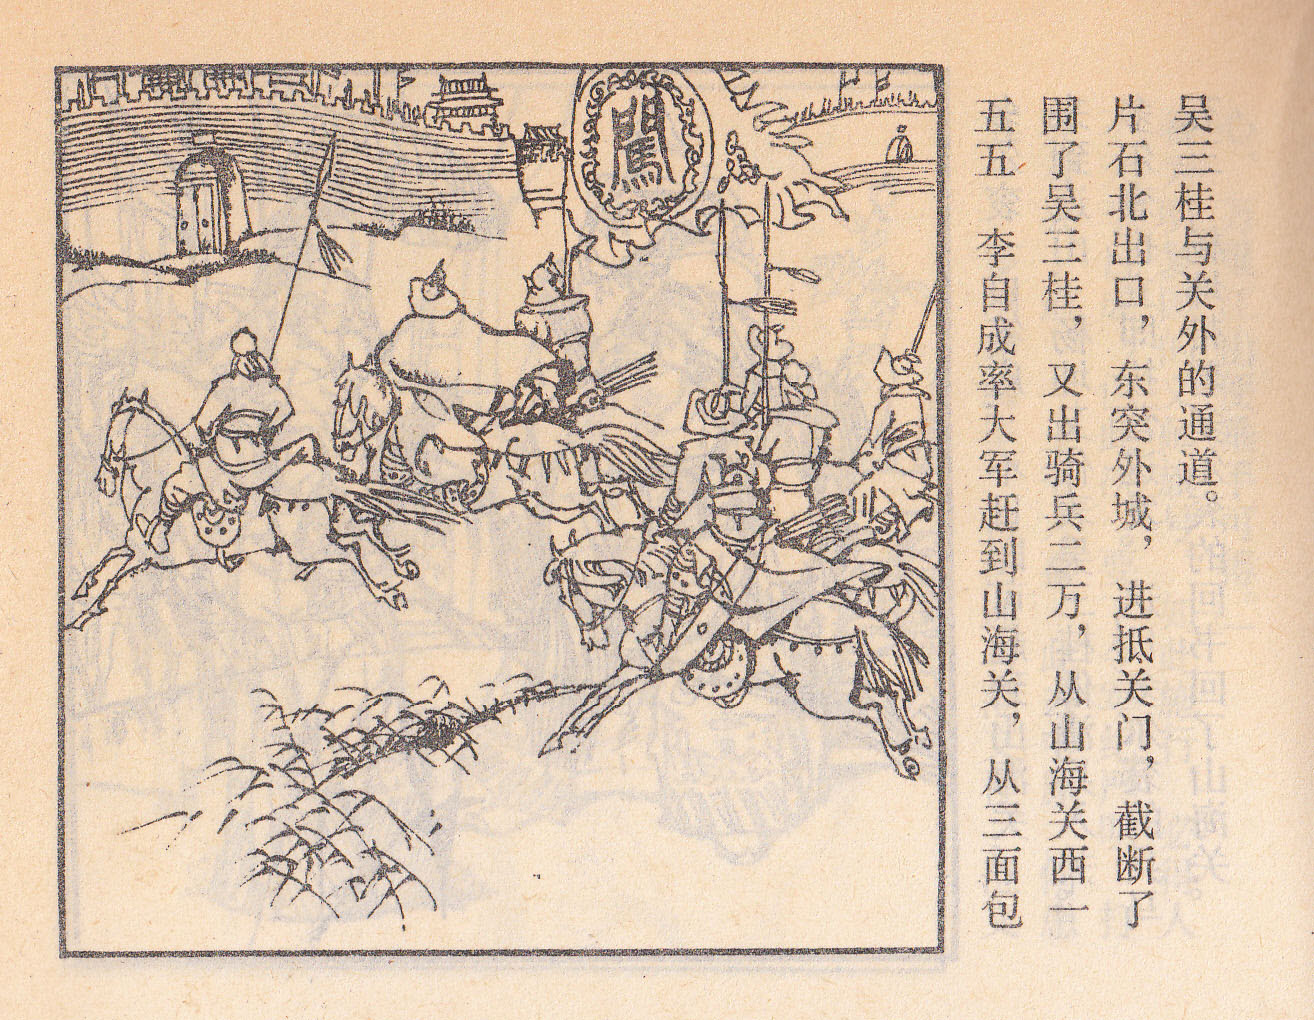 闖
五五 李自成率大军赶到山海关，从三面包
围了吴三桂，又出骑兵二万，从山海关西一
片石北出口，东突外城，进抵关门，截断了
吴三桂与关外的通道。